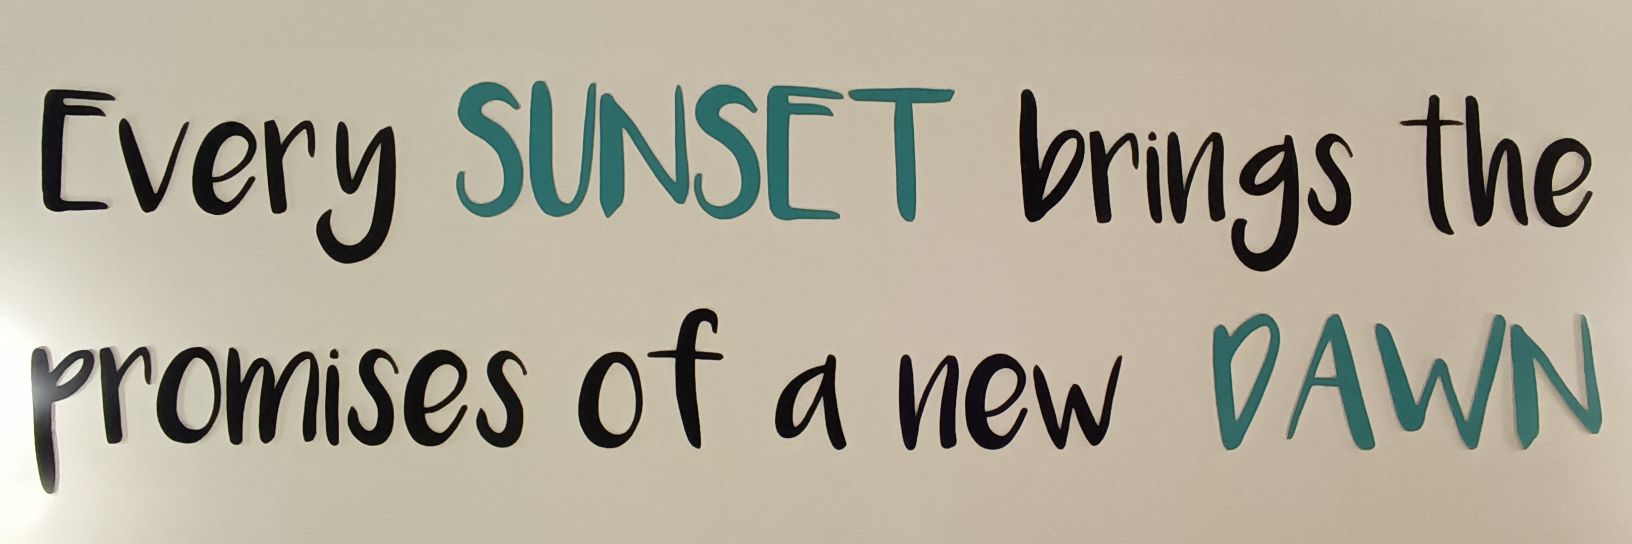 Every SUNSET brings the
promises of a new DAWN